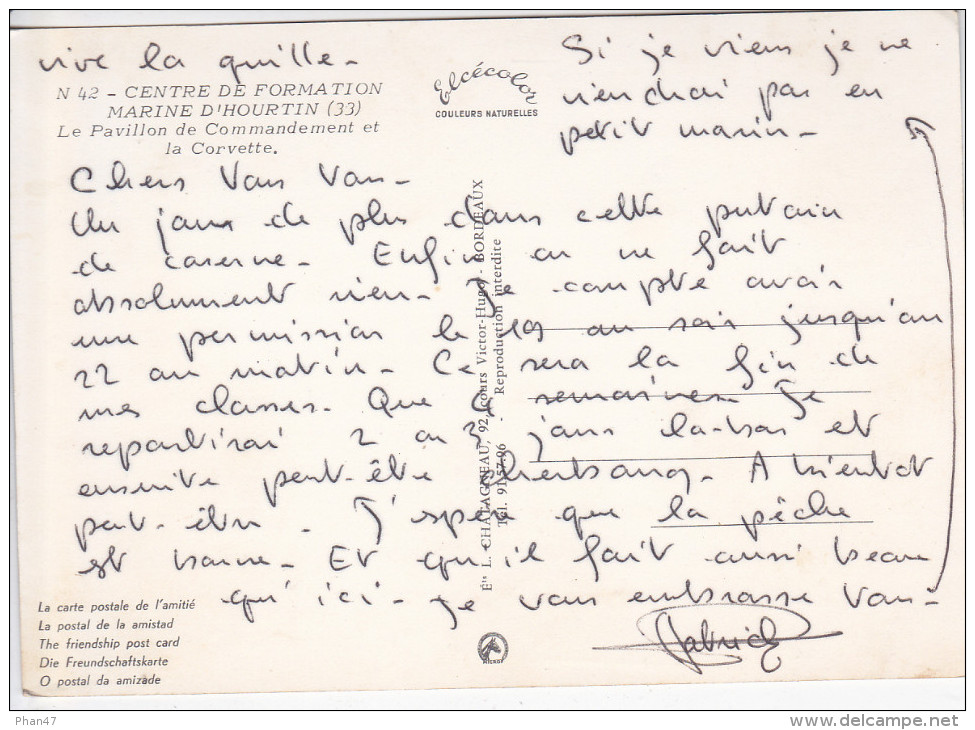 vive la quille -
N 42 - CENTRE DE FORMATION
MARINE D'HOURTIN (33)
Le Pavillon de Commandement et
la Corvette.
Elcécolor
COULEURS NATURELLES
Si je viens je ne
viendrai pas en
petit marin -
Chers Vous Vous -
Un jour de plus dans cette putain
de caserne - Enfin on ne fait
absolument rien - Je compte avoir
une permission le 19 au soir jusqu'au
22 au matin - Ce sera la fin de
mes classes - Que semaines - Je
repartirai 2 ou 3 jours là-bas et
ensuite peut-être Cherbourg - A bientot
peut-être - J'espère que la pêche
est bonne - Et qu'il fait aussi beau
qu'ici - Je vous embrasse Vous -
Patrick
Éts L. CHATAGNEAU, 92, cours Victor-Hugo - BORDEAUX
Tél. 91.57.96 - Reproduction interdite
La carte postale de l'amitié
La postal de la amistad
The friendship post card
Die Freundschaftskarte
O postal da amizade
Phan47
www.delcampe.net